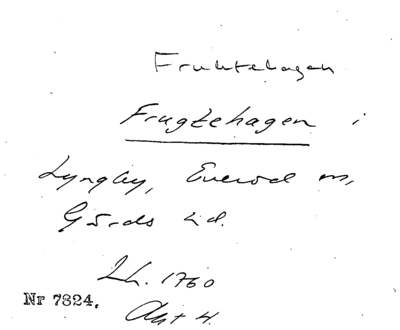 Fruktehagen
Frugtehagen i
Lyngby, Everöd sn,
Gärds hd.
Lh. 1760
Nr 7824.
Akt 4.